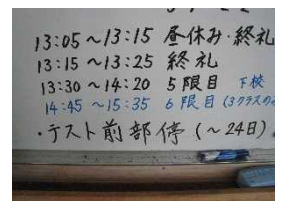 13:05 ～13:15 昼休み・終礼
13:15 ～13:25 終礼
13:30 ～14:20 5限目 下校
14:45 ～15:35 6限目(3クラスのみ
・テスト前部停(～24日)